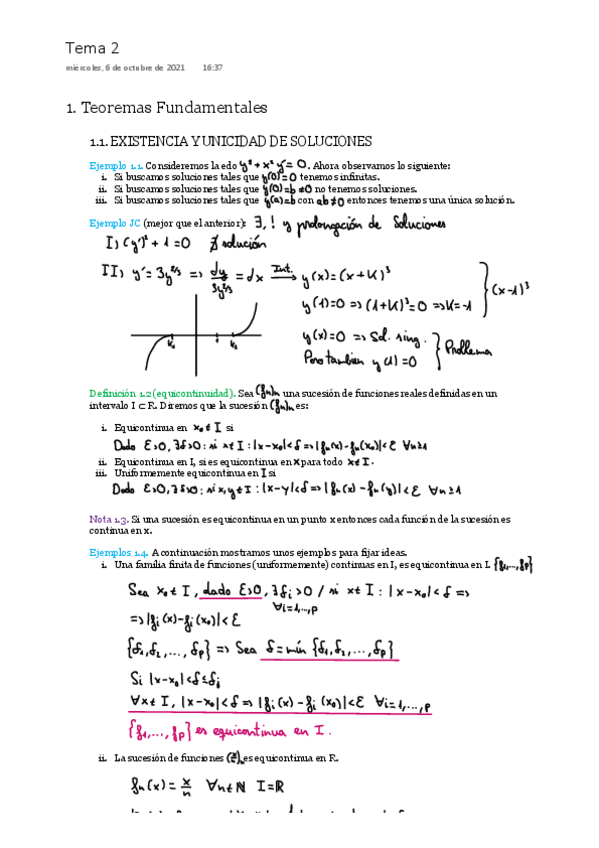 Tema 2
miércoles, 6 de octubre de 2021 16:37
1. Teoremas Fundamentales
1.1. EXISTENCIA Y UNICIDAD DE SOLUCIONES
Ejemplo 1.1. Consideremos la edo y² + x² y' = 0. Ahora observamos lo siguiente:
i. Si buscamos soluciones tales que y(0)=0 tenemos infinitas.
ii. Si buscamos soluciones tales que y(0)=b ≠0 no tenemos soluciones.
iii. Si buscamos soluciones tales que y(a)=b con ab≠0 entonces tenemos una única solución.
Ejemplo JC (mejor que el anterior): ∃, ! y prolongación de Soluciones
I) (y')² + 1 = 0 ∄ solución
II) y' = 3y^{2/3} => dy/3y^{2/3} = dx Int. y(x) = (x+K)³
y(1)=0 => (1+K)³=0 => K=-1
(x-1)³
y(x)=0 => Sol. sing.
Pero tambien y(1)=0
Problema
K₁ 1 K₂
Definición 1.2 (equicontinuidad). Sea (fn)n una sucesión de funciones reales definidas en un
intervalo I ⊂ R. Diremos que la sucesión (fn)n es:
i. Equicontinua en x₀ ∈ I si
Dado ε>0, ∃δ>0 : si x∈I : |x-x₀|<δ => |fn(x)-fn(x₀)|<ε ∀n≥1
ii. Equicontinua en I, si es equicontinua en x para todo x∈I.
iii. Uniformemente equicontinua en I si
Dado ε>0, ∃δ>0 : si x,y∈I : |x-y|<δ => |fn(x)-fn(y)|<ε ∀n≥1
Nota 1.3. Si una sucesión es equicontinua en un punto x entonces cada función de la sucesión es
continua en x.
Ejemplos 1.4. A continuación mostramos unos ejemplos para fijar ideas.
i. Una familia finita de funciones (uniformemente) continuas en I, es equicontinua en I. {f₁,...,fp}
Sea x₀∈I, dado ε>0, ∃δi>0 / si x∈I : |x-x₀|<δ =>
∀i=1,...,p
=> |fi(x)-fi(x₀)|<ε
{δ₁,δ₂,...,δp} => Sea δ=mín{δ₁,δ₂,...,δp}
Si |x-x₀|<δ≤δi
∀x∈I, |x-x₀|<δ => |fi(x)-fi(x₀)|<ε ∀i=1,...,p
{f₁,...,fp} es equicontinua en I.
ii. La sucesión de funciones (x/n)n es equicontinua en R.
fn(x) = x/n ∀n∈ℕ I=ℝ